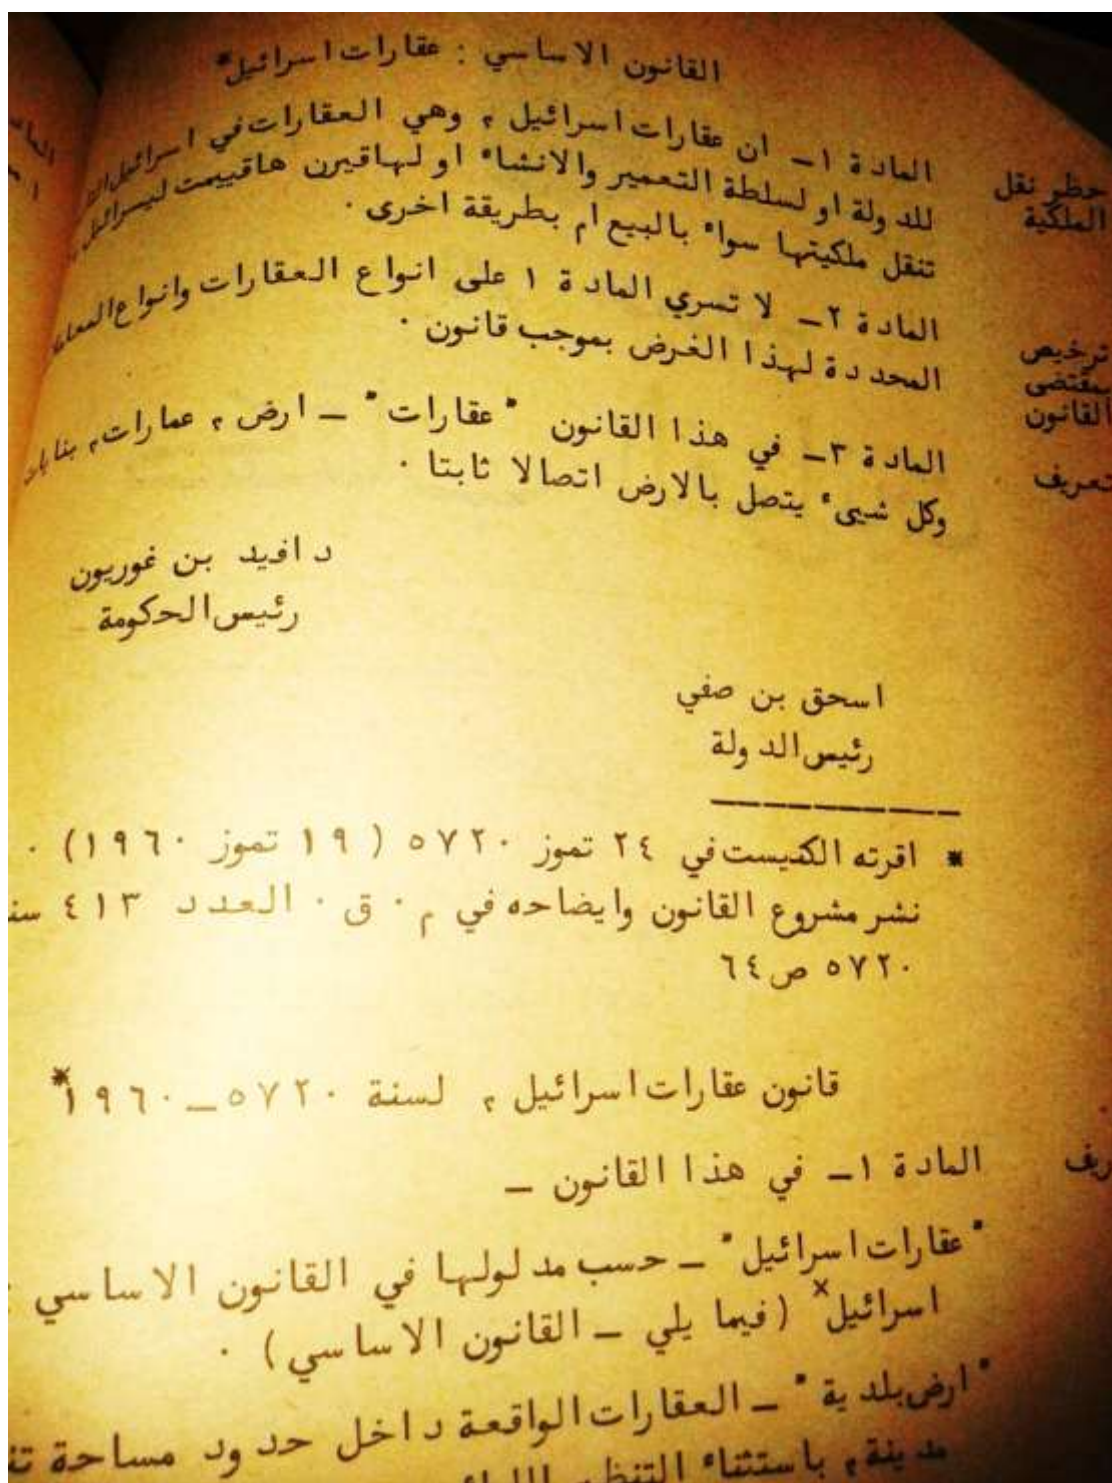 القانون الاساسي : عقارات اسرائيل*
حظر نقل
الملكية
المادة ١ــ ان عقارات اسرائيل ، وهي العقارات في اسرائيل
للدولة او لسلطة التعمير والانشاء او لهاقيرن هاقييمت ليسرائيل
تنقل ملكيتها سواء بالبيع ام بطريقة اخرى ·
ترخيص
بمقتضى
القانون
المادة ٢ــ لا تسري المادة ١ على انواع العقارات وانواع
المحددة لهذا الغرض بموجب قانون ·
تعريف
المادة ٣ــ في هذا القانون "عقارات" ــ ارض ، عمارات، بنايات
وكل شيىء يتصل بالارض اتصالا ثابتا ·
دافيد بن غوريون
رئيس الحكومة
اسحق بن صفي
رئيس الدولة
* اقرته الكنيست في ٢٤ تموز ٥٧٢٠ (١٩ تموز ١٩٦٠) ·
نشر مشروع القانون وايضاحه في م · ق · العدد ٤١٣
٥٧٢٠ ص ٦٤
قانون عقارات اسرائيل ، لسنة ٥٧٢٠ــ١٩٦٠*
المادة ١ــ في هذا القانون ــ
"عقارات اسرائيل" ــ حسب مدلولها في القانون الاساسي :
اسرائيل× (فيما يلي ــ القانون الاساسي) ·
"ارض بلدية" ــ العقارات الواقعة داخل حدود مساحة
مدينة، باستثناء